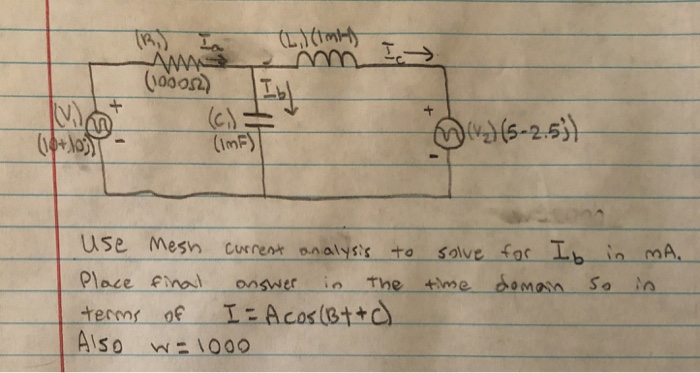 (R₁) Ia (L₁)(1mH) Ic
(1000Ω) Ib
(V₁) + (C₁) + (V₂)(5-2.5j)
(10+10j) - (1mF) -
Use Mesh current analysis to solve for Ib in mA.
Place final answer in the time domain so in
terms of I = A cos(Bt+C)
Also w = 1000